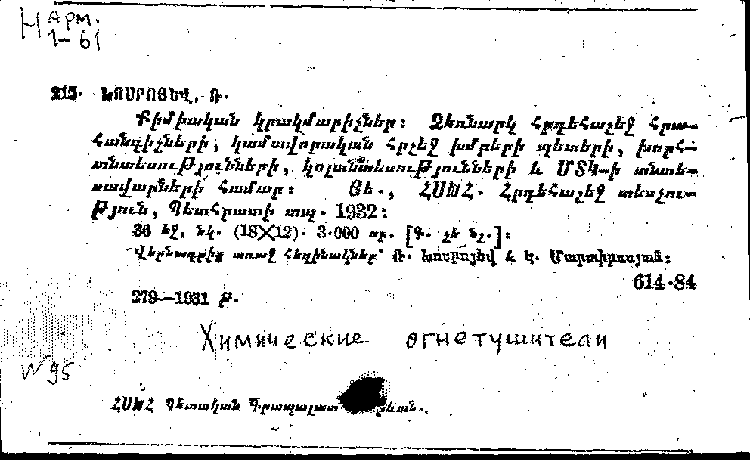 Н арм.
1-61
215. ԽՈՍՐՈՅԵՎ, Ռ.
Քիմիական կրակմարիչներ: Ձեռնարկ հրդեհաշեջ հրա-
հանգիչների, կամավորական հրշեջ խմբերի պետերի, խորհ-
տնտեսությունների, կոլտնտեսությունների և ՄՏԿ-ի տնտե-
սավարների համար: Յե., ՀՍԽՀ. Հրդեհաշեջ տեսչու-
թյուն, Պետհրատի տպ. 1932:
36 եջ, նկ. (18X12). 3.000 որ. [Գ. չե նշ.]:
Վերնագրից առաջ հեղինակներ՝ Ռ. Խոսրոյեվ և Ե. Մարտիրոսյան:
614.84
279—1931 թ.
Химические огнетушители
N 95
ՀՍԽՀ Պետական Գրապալատ